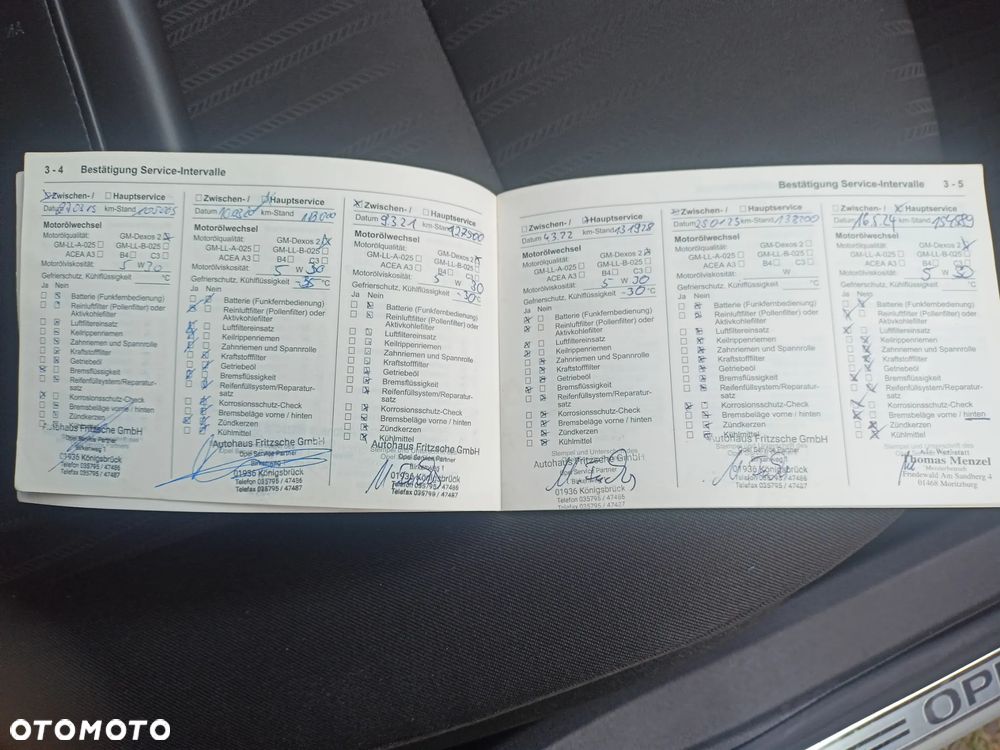 3 - 4 Bestätigung Service-Intervalle
Zwischen- / Hauptservice
Datum km-Stand
Motorölwechsel
Motorölqualität: GM-Dexos 2
GM-LL-A-025 GM-LL-B-025
ACEA A3 B4 C3
Motorölviskosität: 5 W 30
Gefrierschutz, Kühlflüssigkeit °C
Ja Nein
Batterie (Funkfernbedienung)
Reinluftfilter (Pollenfilter) oder
Aktivkohlefilter
Luftfiltereinsatz
Keilrippenriemen
Zahnriemen und Spannrolle
Kraftstofffilter
Getriebeöl
Bremsflüssigkeit
Reifenfüllsystem/Reparatur-
satz
Korrosionsschutz-Check
Bremsbeläge vorne / hinten
Zündkerzen
Autohaus Fritzsche GmbH
Opel Service Partner
Birkenweg 1
01936 Königsbrück
Telefon 035795 / 47486
Telefax 035795 / 47487
Zwischen- / Hauptservice
Datum km-Stand
Motorölwechsel
Motorölqualität:
GM-Dexos 2
GM-LL-A-025 GM-LL-B-025
ACEA A3 B4 C3
Motorölviskosität: 5 W 30
Gefrierschutz, Kühlflüssigkeit °C
Ja Nein
Batterie (Funkfernbedienung)
Reinluftfilter (Pollenfilter) oder
Aktivkohlefilter
Luftfiltereinsatz
Keilrippenriemen
Zahnriemen und Spannrolle
Kraftstofffilter
Getriebeöl
Bremsflüssigkeit
Reifenfüllsystem/Reparatur-
satz
Korrosionsschutz-Check
Bremsbeläge vorne / hinten
Zündkerzen
Kühlmittel
Autohaus Fritzsche GmbH
Opel Service Partner
Birkenweg 1
01936 Königsbrück
Telefon 035795 / 47486
Telefax 035795 / 47487
Zwischen- / Hauptservice
Datum 9.3.21 km-Stand 127500
Motorölwechsel
Motorölqualität:
GM-Dexos 2
GM-LL-A-025 GM-LL-B-025
ACEA A3 B4 C3
Motorölviskosität: 5 W 30
Gefrierschutz, Kühlflüssigkeit -30 °C
Ja Nein
Batterie (Funkfernbedienung)
Reinluftfilter (Pollenfilter) oder
Aktivkohlefilter
Luftfiltereinsatz
Keilrippenriemen
Zahnriemen und Spannrolle
Kraftstofffilter
Getriebeöl
Bremsflüssigkeit
Reifenfüllsystem/Reparatur-
satz
Korrosionsschutz-Check
Bremsbeläge vorne / hinten
Zündkerzen
Kühlmittel
Autohaus Fritzsche GmbH
Opel Service Partner
Birkenweg 1
01936 Königsbrück
Telefon 035795 / 47486
Telefax 035795 / 47487
Bestätigung Service-Intervalle 3 - 5
Zwischen- / Hauptservice
Datum 4.3.22 km-Stand 131928
Motorölwechsel
Motorölqualität:
GM-Dexos 2
GM-LL-A-025 GM-LL-B-025
ACEA A3 B4 C3
Motorölviskosität: 5 W 30
Gefrierschutz, Kühlflüssigkeit -30 °C
Ja Nein
Batterie (Funkfernbedienung)
Reinluftfilter (Pollenfilter) oder
Aktivkohlefilter
Luftfiltereinsatz
Keilrippenriemen
Zahnriemen und Spannrolle
Kraftstofffilter
Getriebeöl
Bremsflüssigkeit
Reifenfüllsystem/Reparatur-
satz
Korrosionsschutz-Check
Bremsbeläge vorne / hinten
Zündkerzen
Kühlmittel
Autohaus Fritzsche GmbH
Opel Service Partner
Birkenweg 1
01936 Königsbrück
Telefon 035795 / 47486
Telefax 035795 / 47487
Zwischen- / Hauptservice
Datum 25.01.23 km-Stand 138200
Motorölwechsel
Motorölqualität:
GM-Dexos 2
GM-LL-A-025 GM-LL-B-025
ACEA A3 B4 C3
Motorölviskosität: W
Gefrierschutz, Kühlflüssigkeit °C
Ja Nein
Batterie (Funkfernbedienung)
Reinluftfilter (Pollenfilter) oder
Aktivkohlefilter
Luftfiltereinsatz
Keilrippenriemen
Zahnriemen und Spannrolle
Kraftstofffilter
Getriebeöl
Bremsflüssigkeit
Reifenfüllsystem/Reparatur-
satz
Korrosionsschutz-Check
Bremsbeläge vorne / hinten
Zündkerzen
Kühlmittel
Autohaus Fritzsche GmbH
Opel Service Partner
Birkenweg 1
01936 Königsbrück
Telefon 035795 / 47486
Telefax 035795 / 47487
Zwischen- / Hauptservice
Datum 16.5.24 154589
Motorölwechsel
Motorölqualität:
GM-Dexos 2
GM-LL-A-025 GM-LL-B-025
ACEA A3 B4 C3
Motorölviskosität: 5 W 30
Gefrierschutz, Kühlflüssigkeit °C
Ja Nein
Batterie (Funkfernbedienung)
Reinluftfilter (Pollenfilter) oder
Aktivkohlefilter
Luftfiltereinsatz
Keilrippenriemen
Zahnriemen und Spannrolle
Kraftstofffilter
Getriebeöl
Bremsflüssigkeit
Reifenfüllsystem/Reparatur-
satz
Korrosionsschutz-Check
Bremsbeläge vorne / hinten
Zündkerzen
Kühlmittel
Thomas Menzel
Meisterbetrieb
Friedewald Am Sandberg 4
01468 Moritzburg
OPE
OTOMOTO